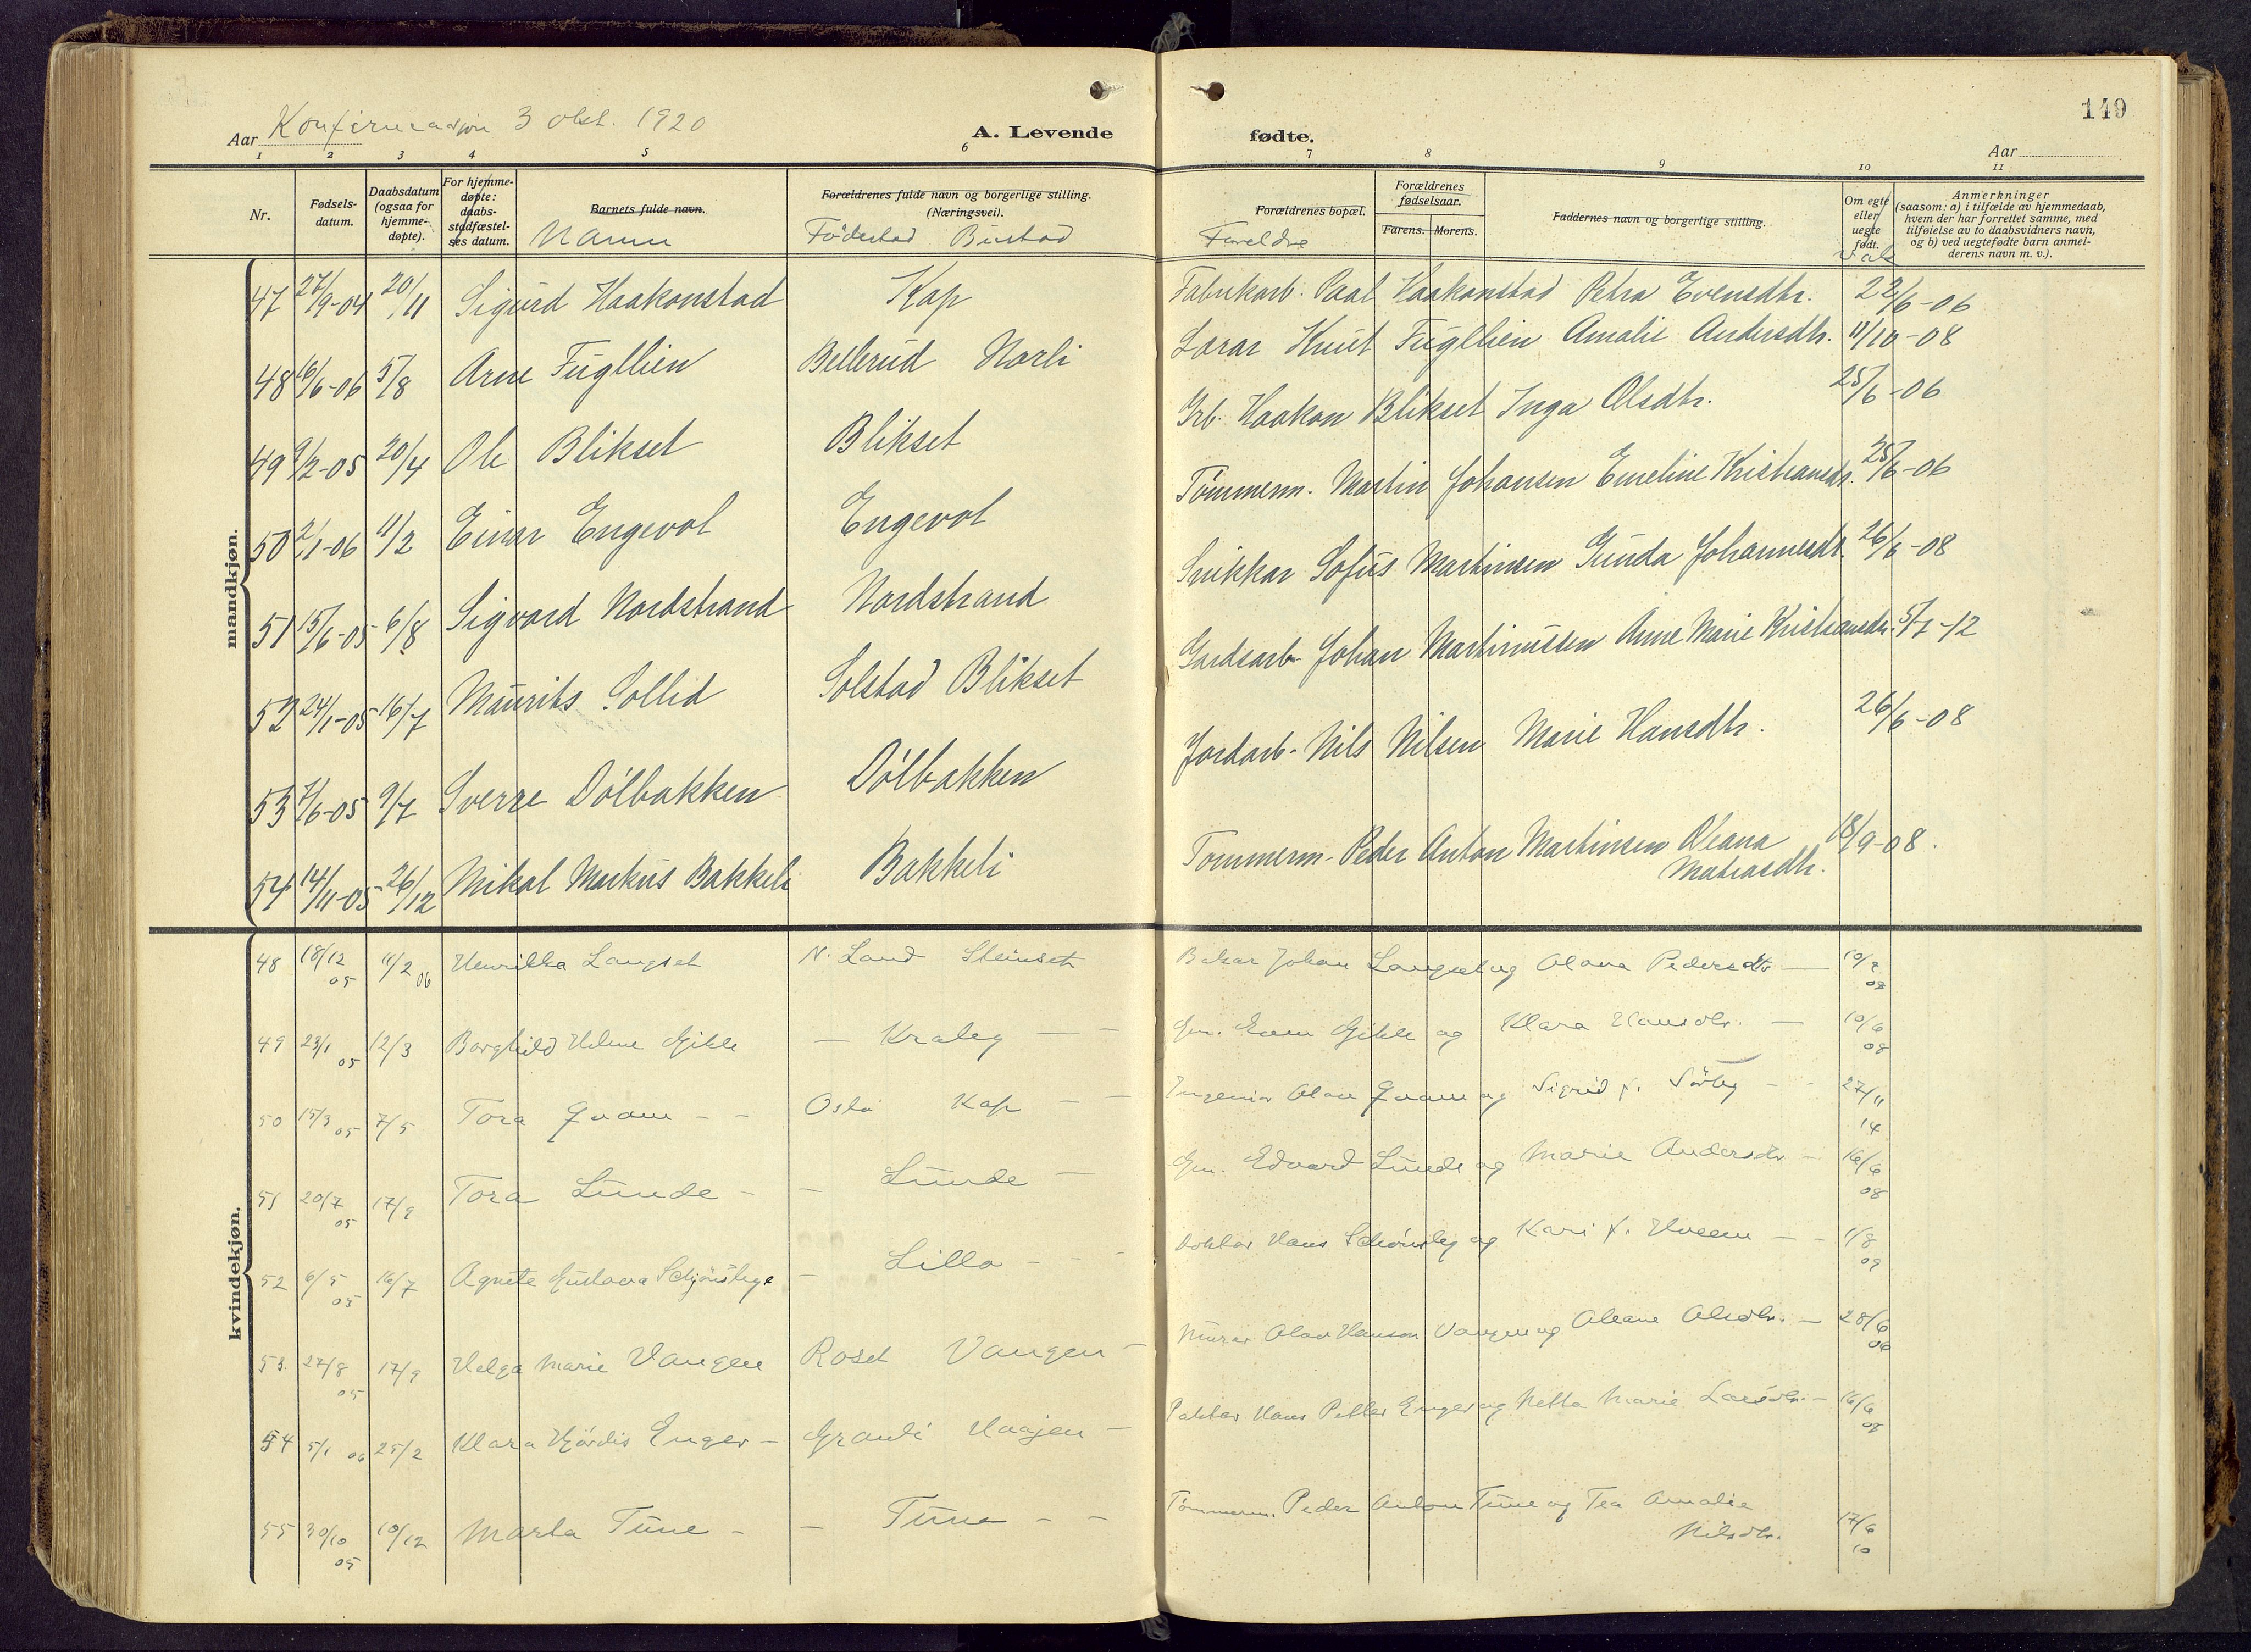 149
Aar Konfirmasjon 3 okt. 1920
A. Levende fødte.
Aar
1 2 3 4 5 6 7 8 9 10 11
Nr.
Fødsels-
datum.
Daabsdatum
(ogsaa for
hjemme-
døpte).
For hjemme-
døpte:
daabs-
stadfæstel-
ses datum.
Barnets fulde navn.
Namn
Forældrenes fulde navn og borgerlige stilling.
(Næringsvei).
Födestad Bustad
Forældrenes bopæl.
Foreldre
Forældrenes
fødselsaar.
Farens. Morens.
Faddernes navn og borgerlige stilling.
Om egte
eller
uegte
født.
Vak
Anmerkninger
(saasom: a) i tilfælde av hjemmedaab,
hvem der har forrettet samme, med
tilføielse av to daabsvidners navn,
og b) ved uegtefødte barn anmel-
derens navn m. v.).
mandkjøn.
47 27/9-04 20/11 Sigurd Haakonstad Kap Fabrikarb. Paal Haakonstad Petra Evensdtr. 22/6-06
48 16/6-06 5/8 Arne Fugllien Bellerud Norli Lærar Knut Fugllien Amalie Andersdtr. 11/10-08
49 9/2-05 20/4 Ole Blikset Blikset Grb. Haakon Blikset Inga Olsdtr. 25/6-06
50 2/1-06 11/2 Einar Engevol Engevol Tömmerm. Martin Johansen Emeline Kristiansdr. 25/6-06
51 15/6-05 6/8 Sigvard Nordstrand Nordstrand Snikkar Sofus Martinsen Gunda Johannesdr. 26/6-08
52 24/1-05 16/7 Maurits Sollid Solstad Blikset Gardsarb. Johan Martinussen Anne Marie Kristiansdr. 5/7-12
53 7/6-05 9/7 Sverre Dölbakken Dölbakken Jordarb. Nils Nilsen Marie Hansdtr. 26/6-08
54 14/11-05 26/12 Mikal Markus Bakkeli Bakkeli Tommerm. Peder Anton Martinsen Oleana 18/9-08.
Matiasdtr.
kvindekjøn.
48 18/12 05 11/2 06 Henrikka Langset N. Land Steinset Bakar Johan Langset og Olava Pedersdtr — 10/2 08
49 23/1 05 12/3 Borghild Helene Gihle — Kraleg — — Grn. Even Gihle og Klara Hansdtr. — 10/6 08
50 15/3 05 7/5 Tora Qvam - - Oslo Kap — — Ingeniör Olav Qvam og Sigrid f. Sörby - - 27/11 14
51 20/7 05 17/9 Tora Lunde - - Lunde — Grn. Edvard Lunde og Marie Andersdtr — 16/6 08
52 6/5 05 16/7 Agnete Gustava Schjönsbye — Lillo - - Doktor Hans Schönsby og Kari f. Hveem — - 1/8 09
53. 27/8 05 17/9 Helga Marie Vangen Roset Vangen — Murar Olav Hanson Vangen og Oleane Olsdtr. — 28/6 06
54 5/1 06 25/2 Klara Hjördis Enger — Granli Haajen — Pakkar Hans Petter Enger og Netta Marie Larsdtr. — 16/6 08
55 30/10 05 10/12 Marta Tune - - Tune - - Tömmerm. Peder Anton Tune og Tea Amalie
Nilsdtr. 17/6 10